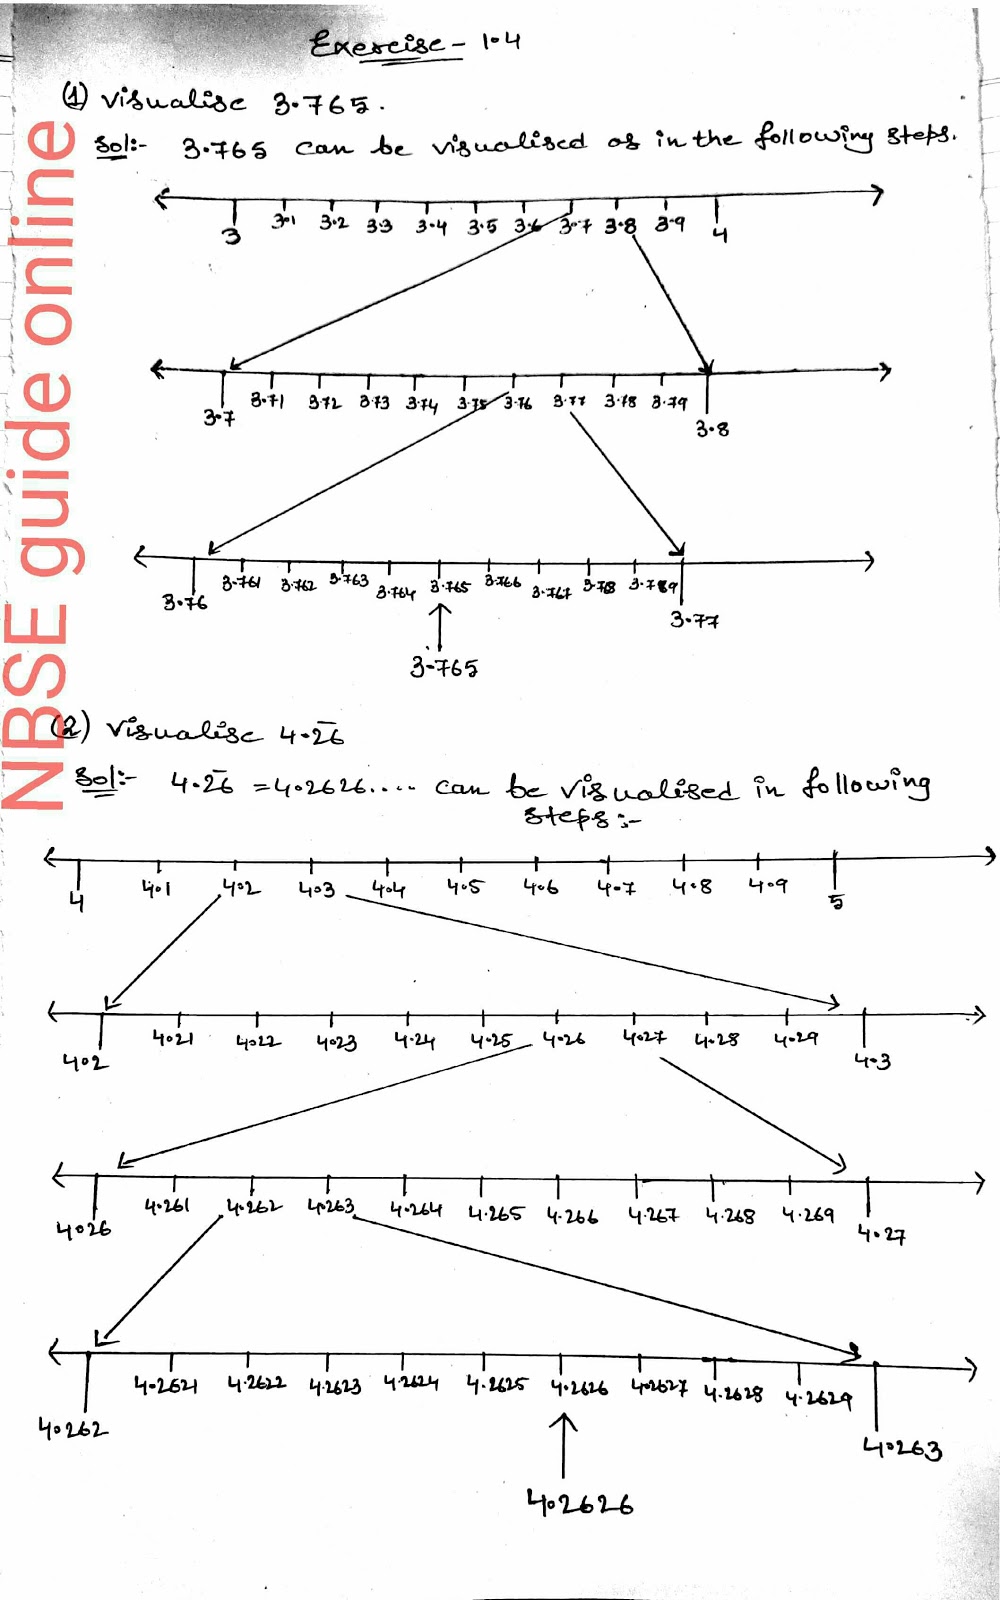 Exercise - 1.4
(1) visualise 3.765.
Sol:- 3.765 can be visualised as in the following steps.
3 3.1 3.2 3.3 3.4 3.5 3.6 3.7 3.8 3.9 4
3.7 3.71 3.72 3.73 3.74 3.75 3.76 3.77 3.78 3.79 3.8
3.76 3.761 3.762 3.763 3.764 3.765 3.766 3.767 3.768 3.769 3.77
3.765
(2) visualise 4.2̅6̅
Sol:- 4.2̅6̅ = 4.2626.... can be visualised in following
steps:-
4 4.1 4.2 4.3 4.4 4.5 4.6 4.7 4.8 4.9 5
4.2 4.21 4.22 4.23 4.24 4.25 4.26 4.27 4.28 4.29 4.3
4.26 4.261 4.262 4.263 4.264 4.265 4.266 4.267 4.268 4.269 4.27
4.262 4.2621 4.2622 4.2623 4.2624 4.2625 4.2626 4.2627 4.2628 4.2629 4.263
4.2626
NBSE guide online